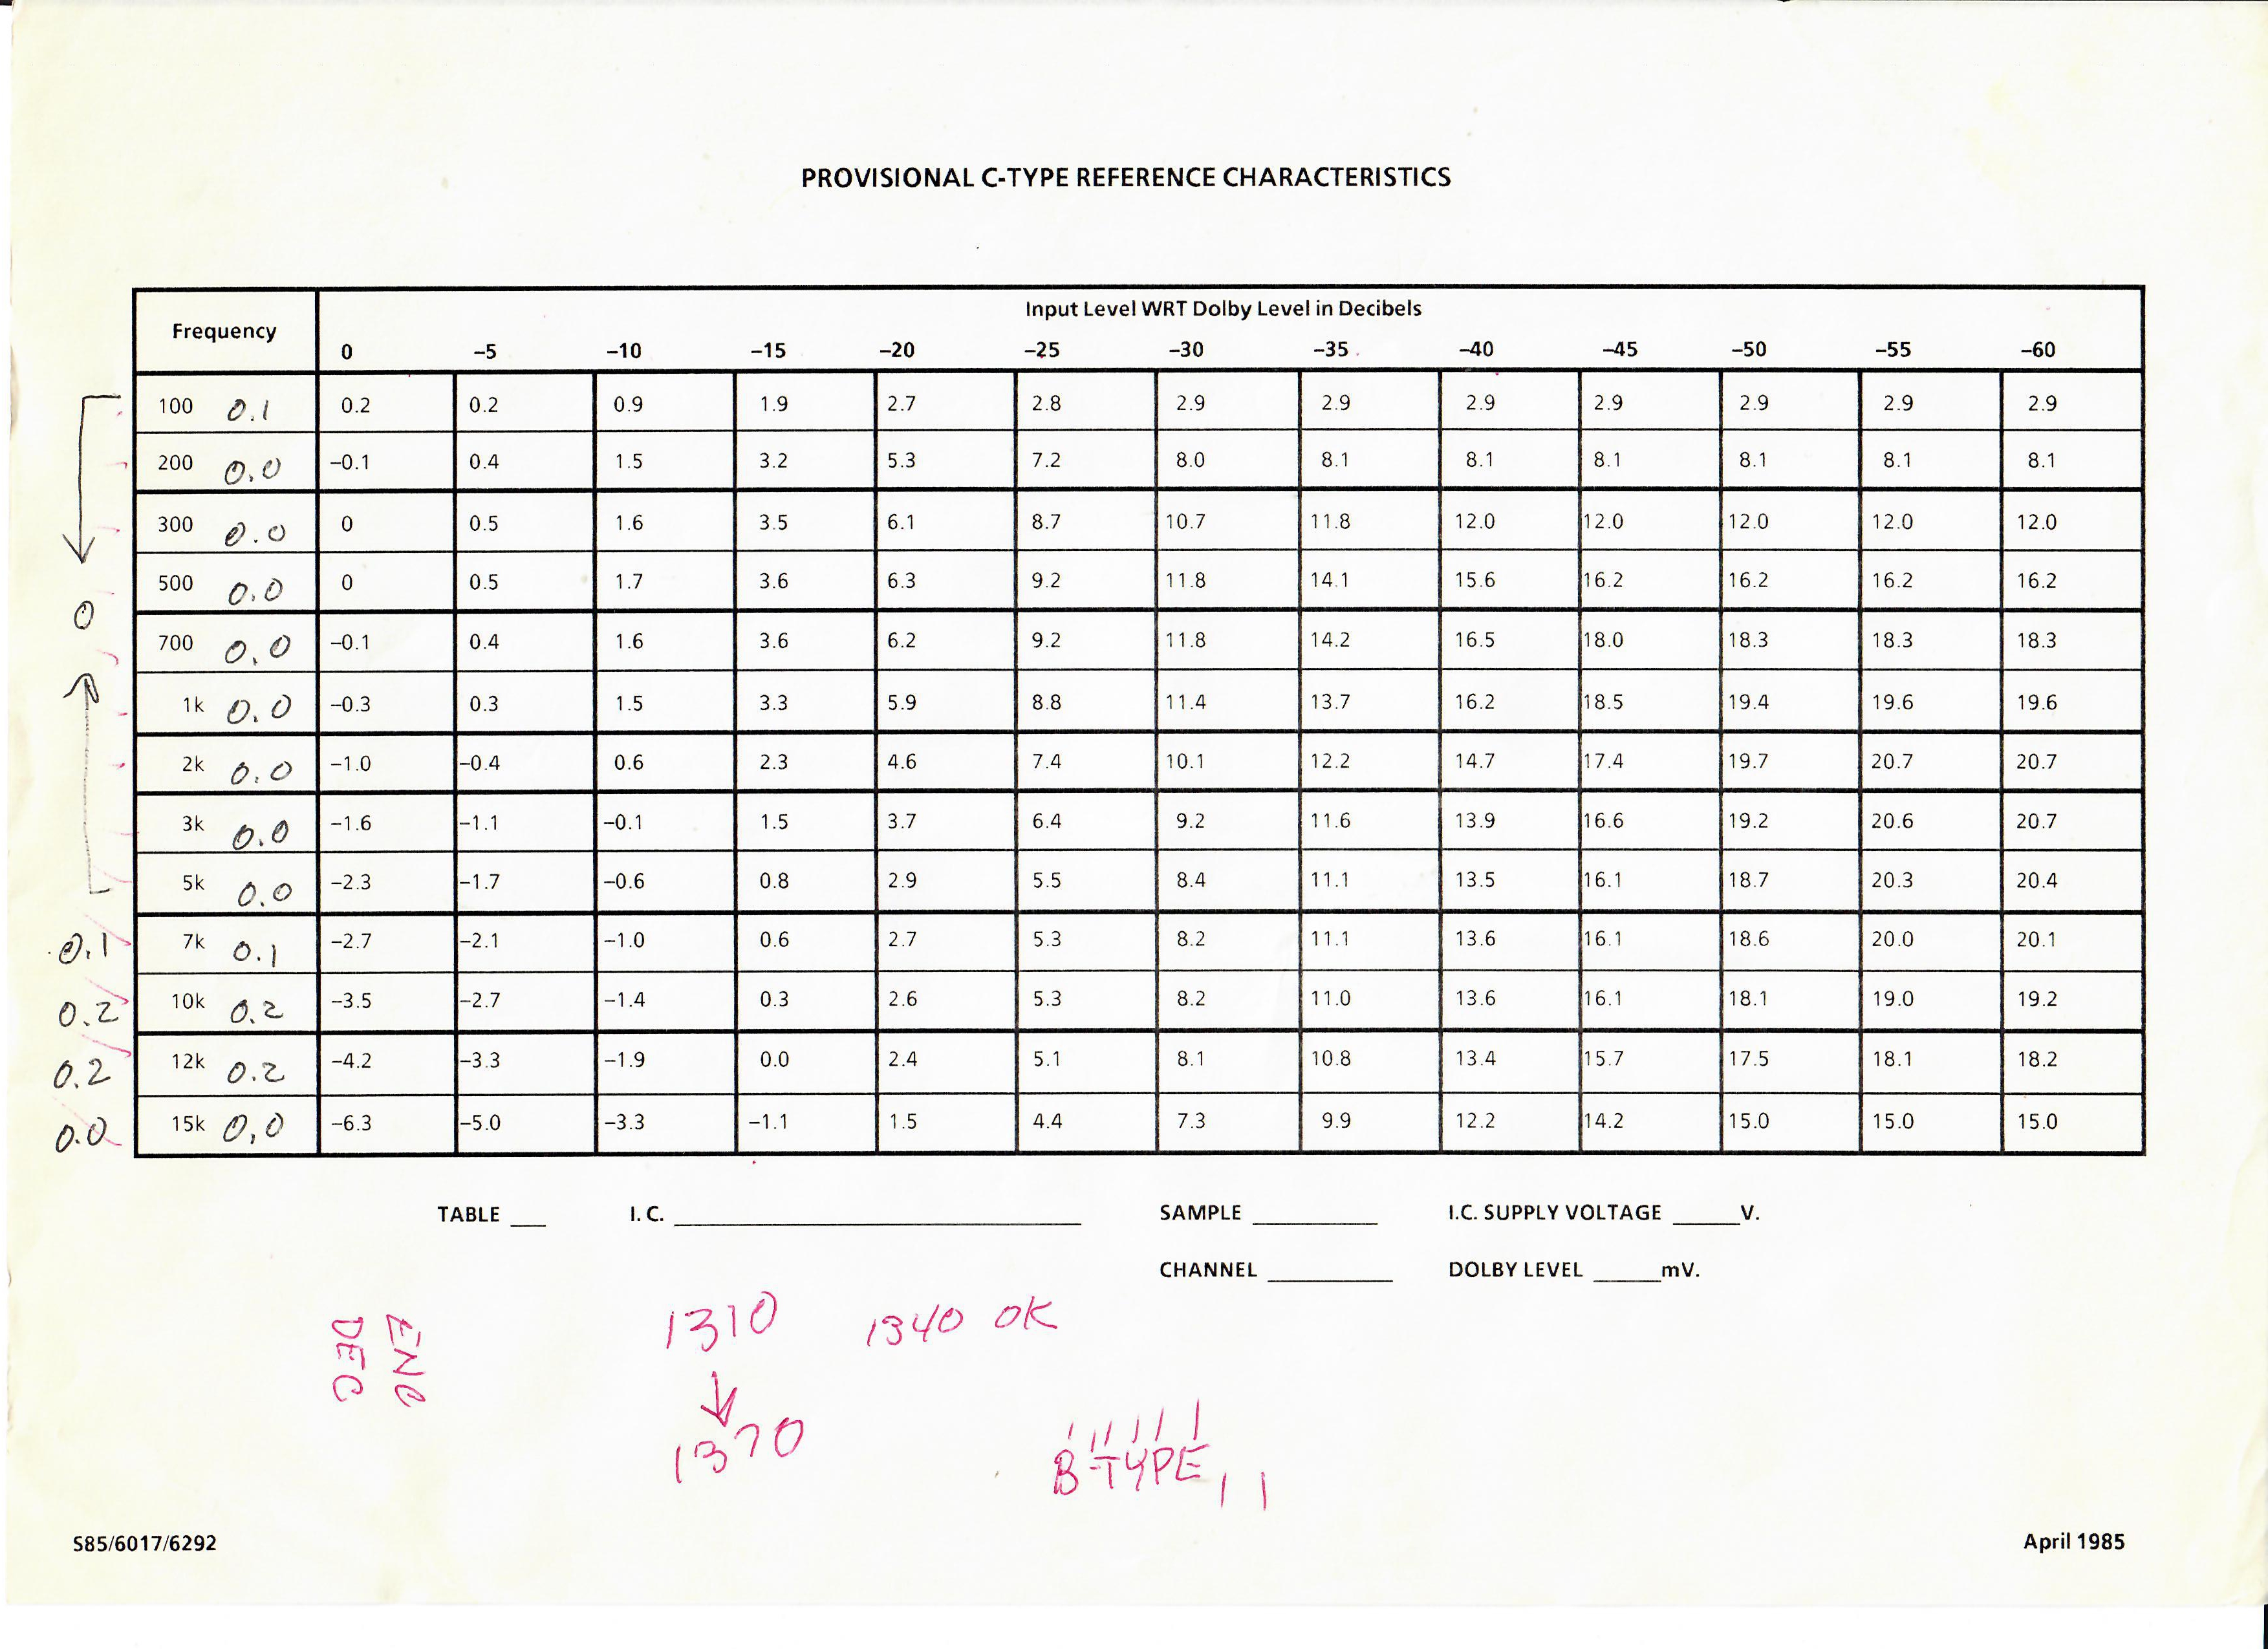 PROVISIONAL C-TYPE REFERENCE CHARACTERISTICS
Frequency Input Level WRT Dolby Level in Decibels
0 –5 –10 –15 –20 –25 –30 –35 –40 –45 –50 –55 –60
100 0.1 0.2 0.2 0.9 1.9 2.7 2.8 2.9 2.9 2.9 2.9 2.9 2.9 2.9
200 0.0 –0.1 0.4 1.5 3.2 5.3 7.2 8.0 8.1 8.1 8.1 8.1 8.1 8.1
300 0.0 0 0.5 1.6 3.5 6.1 8.7 10.7 11.8 12.0 12.0 12.0 12.0 12.0
500 0.0 0 0.5 1.7 3.6 6.3 9.2 11.8 14.1 15.6 16.2 16.2 16.2 16.2
0
700 0.0 –0.1 0.4 1.6 3.6 6.2 9.2 11.8 14.2 16.5 18.0 18.3 18.3 18.3
1k 0.0 –0.3 0.3 1.5 3.3 5.9 8.8 11.4 13.7 16.2 18.5 19.4 19.6 19.6
2k 0.0 –1.0 –0.4 0.6 2.3 4.6 7.4 10.1 12.2 14.7 17.4 19.7 20.7 20.7
3k 0.0 –1.6 –1.1 –0.1 1.5 3.7 6.4 9.2 11.6 13.9 16.6 19.2 20.6 20.7
5k 0.0 –2.3 –1.7 –0.6 0.8 2.9 5.5 8.4 11.1 13.5 16.1 18.7 20.3 20.4
0.1 7k 0.1 –2.7 –2.1 –1.0 0.6 2.7 5.3 8.2 11.1 13.6 16.1 18.6 20.0 20.1
0.2 10k 0.2 –3.5 –2.7 –1.4 0.3 2.6 5.3 8.2 11.0 13.6 16.1 18.1 19.0 19.2
0.2 12k 0.2 –4.2 –3.3 –1.9 0.0 2.4 5.1 8.1 10.8 13.4 15.7 17.5 18.1 18.2
0.0 15k 0,0 –6.3 –5.0 –3.3 –1.1 1.5 4.4 7.3 9.9 12.2 14.2 15.0 15.0 15.0
TABLE ___ I. C. ___ SAMPLE ___ I.C. SUPPLY VOLTAGE ___ V.
CHANNEL ___ DOLBY LEVEL ___ mV.
ENC
DEC
1310 1340 OK
↓
1370
B-TYPE
S85/6017/6292 April 1985